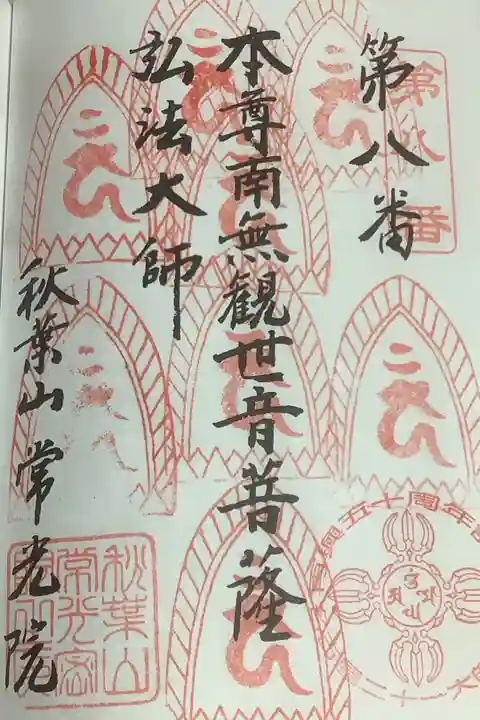 第八番
第八番
本尊南無観世音菩薩
弘法大師
秋葉山常光院
秋葉山
興五十周年